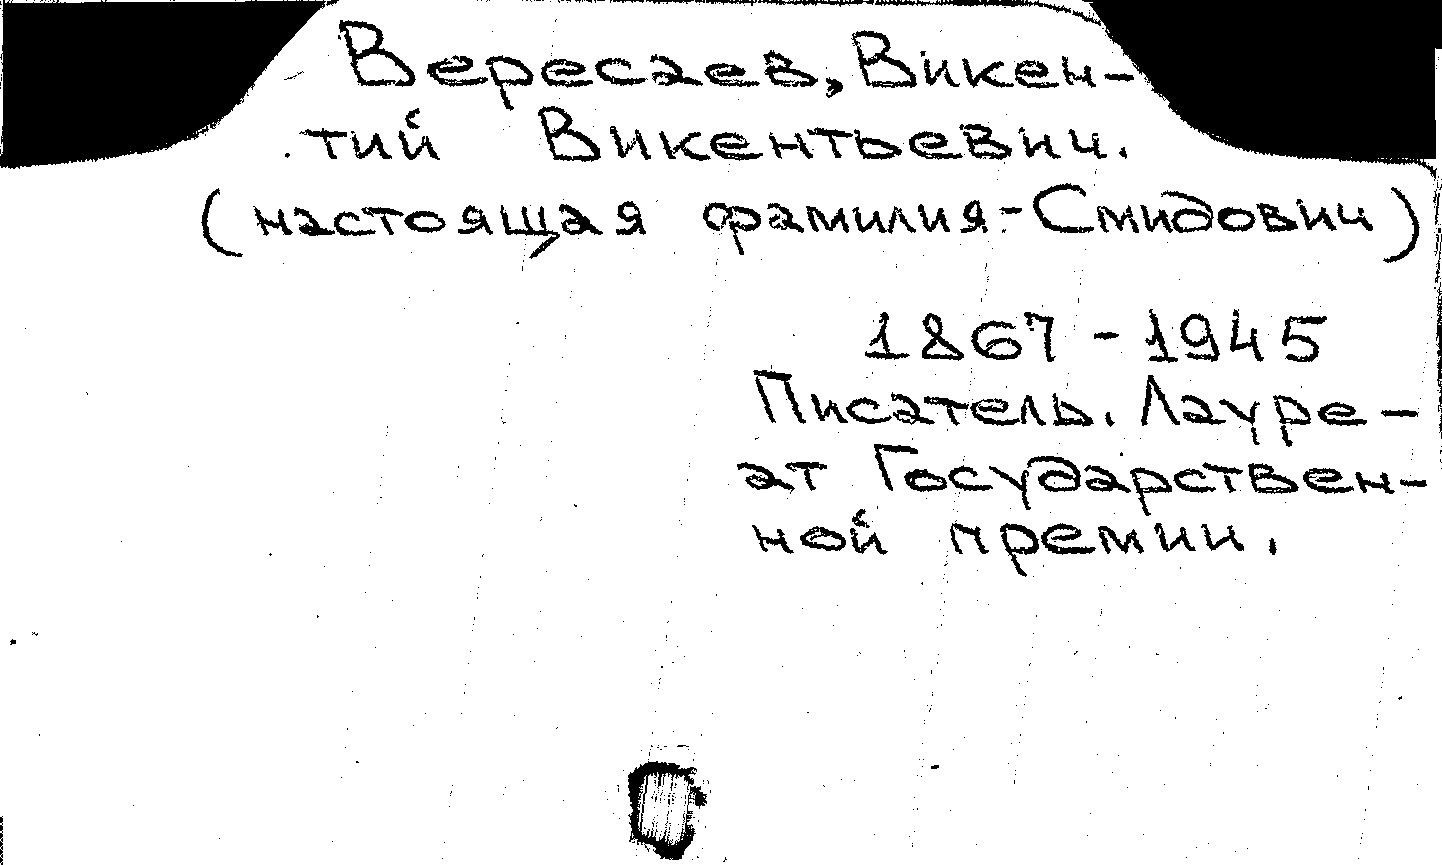 Вересаев, Викен-
тий Викентьевич.
(настоящая фамилия - Смидович)
1867 - 1945
Писатель. Лауре-
ат Государствен-
ной премии.